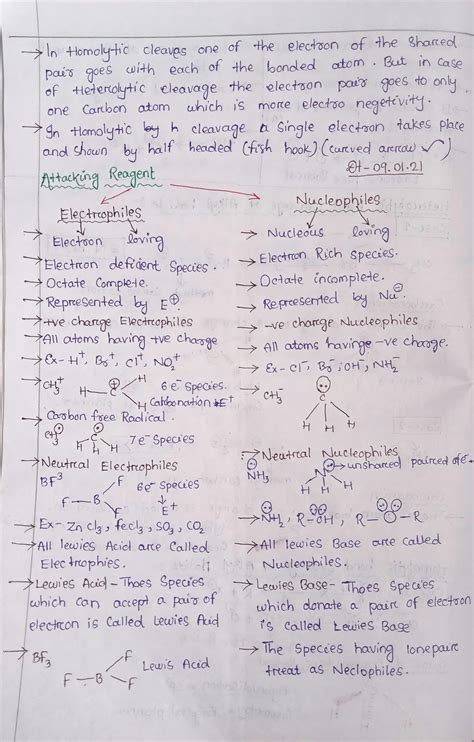 → In Homolytic cleavas one of the electron of the Shared
pair goes with each of the bonded atom. But in case
of Heterolytic cleavage the electron pair goes to only
one Carbon atom which is more electro negetivity.
→ In Homolytic by h cleavage a Single electron takes place
and shown by half headed (fish hook) (curved arrow)
Dt-09.01.21
Attacking Reagent
Electrophiles
Electron loving
→ Electron deficient Species.
→ Octate Complete.
→ Represented by E⊕
→ +ve charge Electrophiles
→ All atoms having +ve charge
→ Ex- H⁺, Br⁺, Cl⁺, NO₂⁺
→ CH₃⁺ H-C-H H 6 e⁻ Species.
Carbonation E⁺
→ Carbon free Radical.
CH₃ C H H H 7e⁻ Species
→ Neutral Electrophiles
BF³ F-B F F 6e⁻ Species
↓
E⁺
→ Ex- Zn Cl₃, fecl₃, SO₃, CO₂
→ All lewies Acid are Called
Electrophies.
→ Lewies Acid - Thoes Species
which can accept a pair of
electron is Called Lewies Acid
→ BF₃ F-B F F Lewis Acid
Nucleophiles
→ Nucleous loving
→ Electron Rich species.
→ Octate incomplete.
→ Represented by Nu⊖
→ -ve charge Nucleophiles
→ All atoms having -ve charge.
→ Ex- Cl⁻, Br⁻, OH⁻, NH₂⁻
→ CH₃⁻ C H H H
→ Neutral Nucleophiles
NH₃ N H H H → unshared paired of e⁻
→ NH₂, R-OH, R-O-R
→ All lewies Base are called
Nucleophiles.
→ Lewies Base - Thoes Species
which donate a pair of electron
is called Lewies Base
→ The Species having lonepair
treat as Neclophiles.